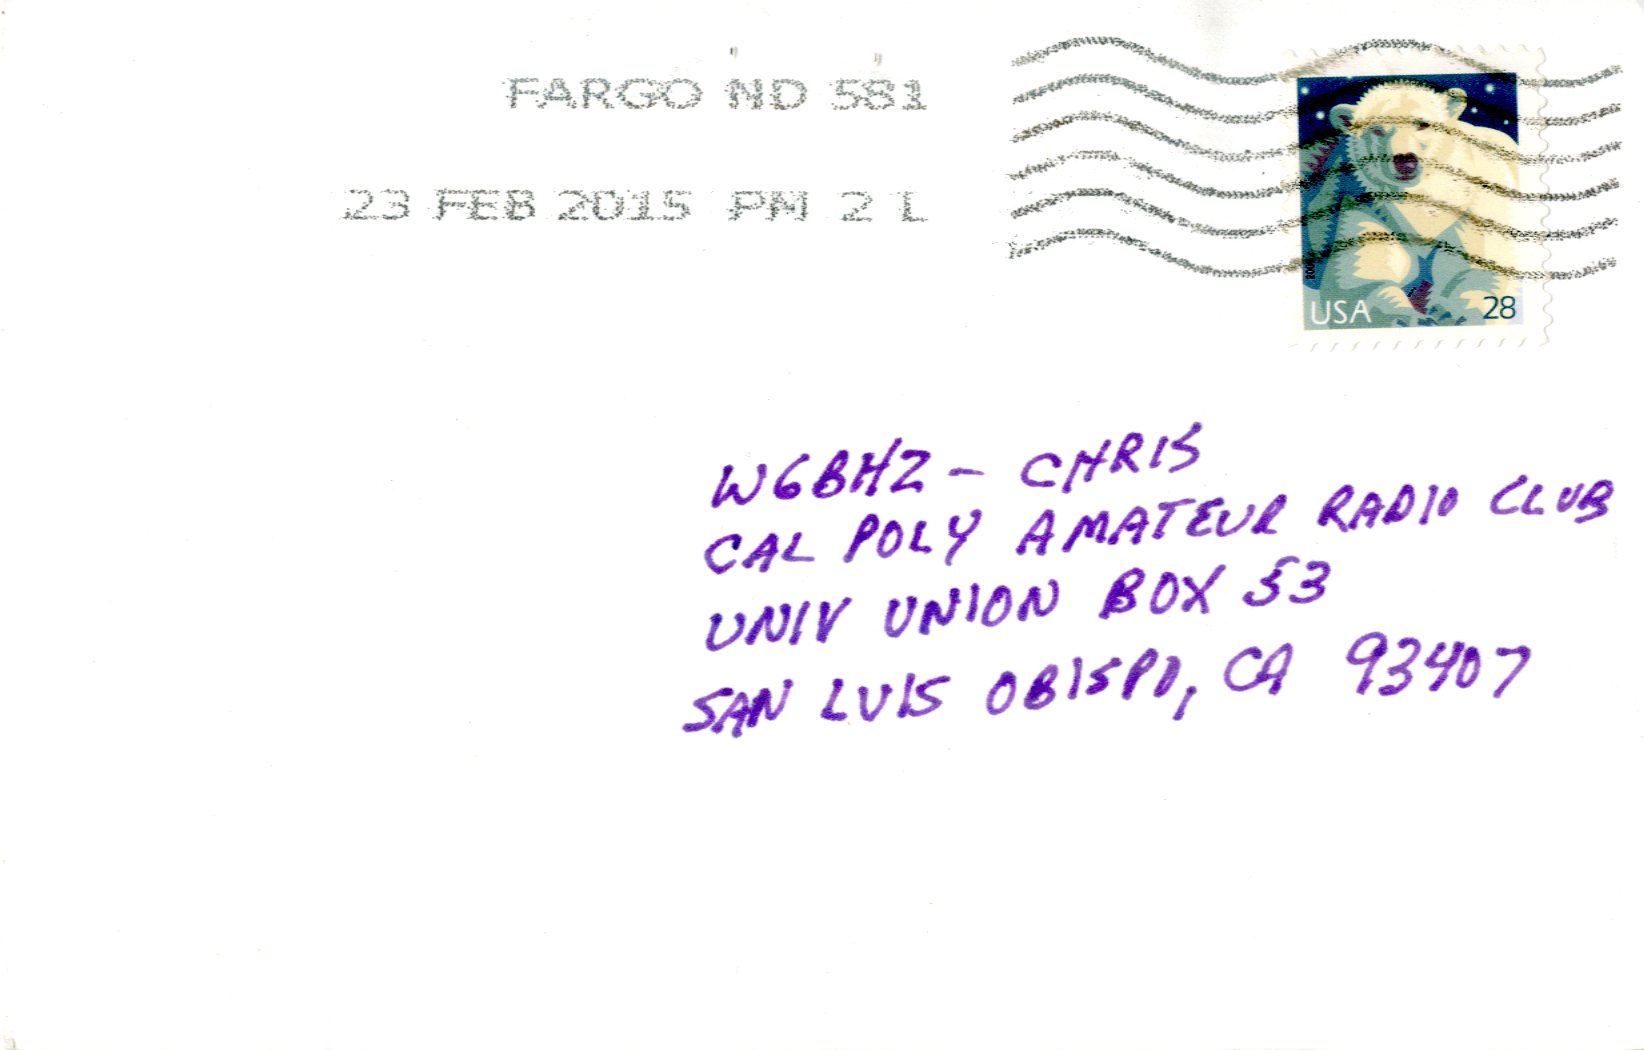 FARGO ND 581
23 FEB 2015 PM 2 L
USA 28
W6BHZ - CHRIS
CAL POLY AMATEUR RADIO CLUB
UNIV UNION BOX 53
SAN LUIS OBISPO, CA 93407